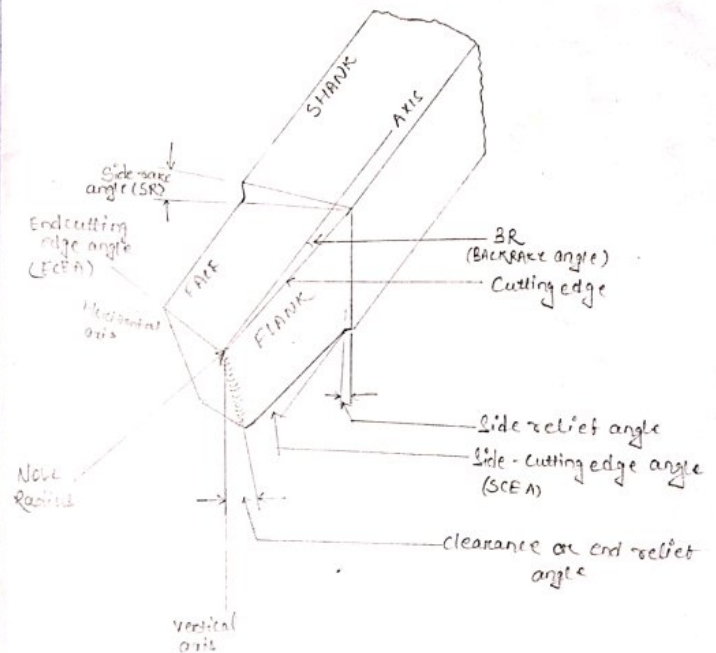 SHANK
AXIS
Side-rake
angle (SR)
End cutting
edge angle
(ECEA)
FACE
Horizontal
axis
FLANK
BR
(BACKRAKE angle)
Cutting edge
Side relief angle
Side-Cutting edge angle
(SCEA)
Nose
Radius
Clearance or end relief
angle
Vertical
axis